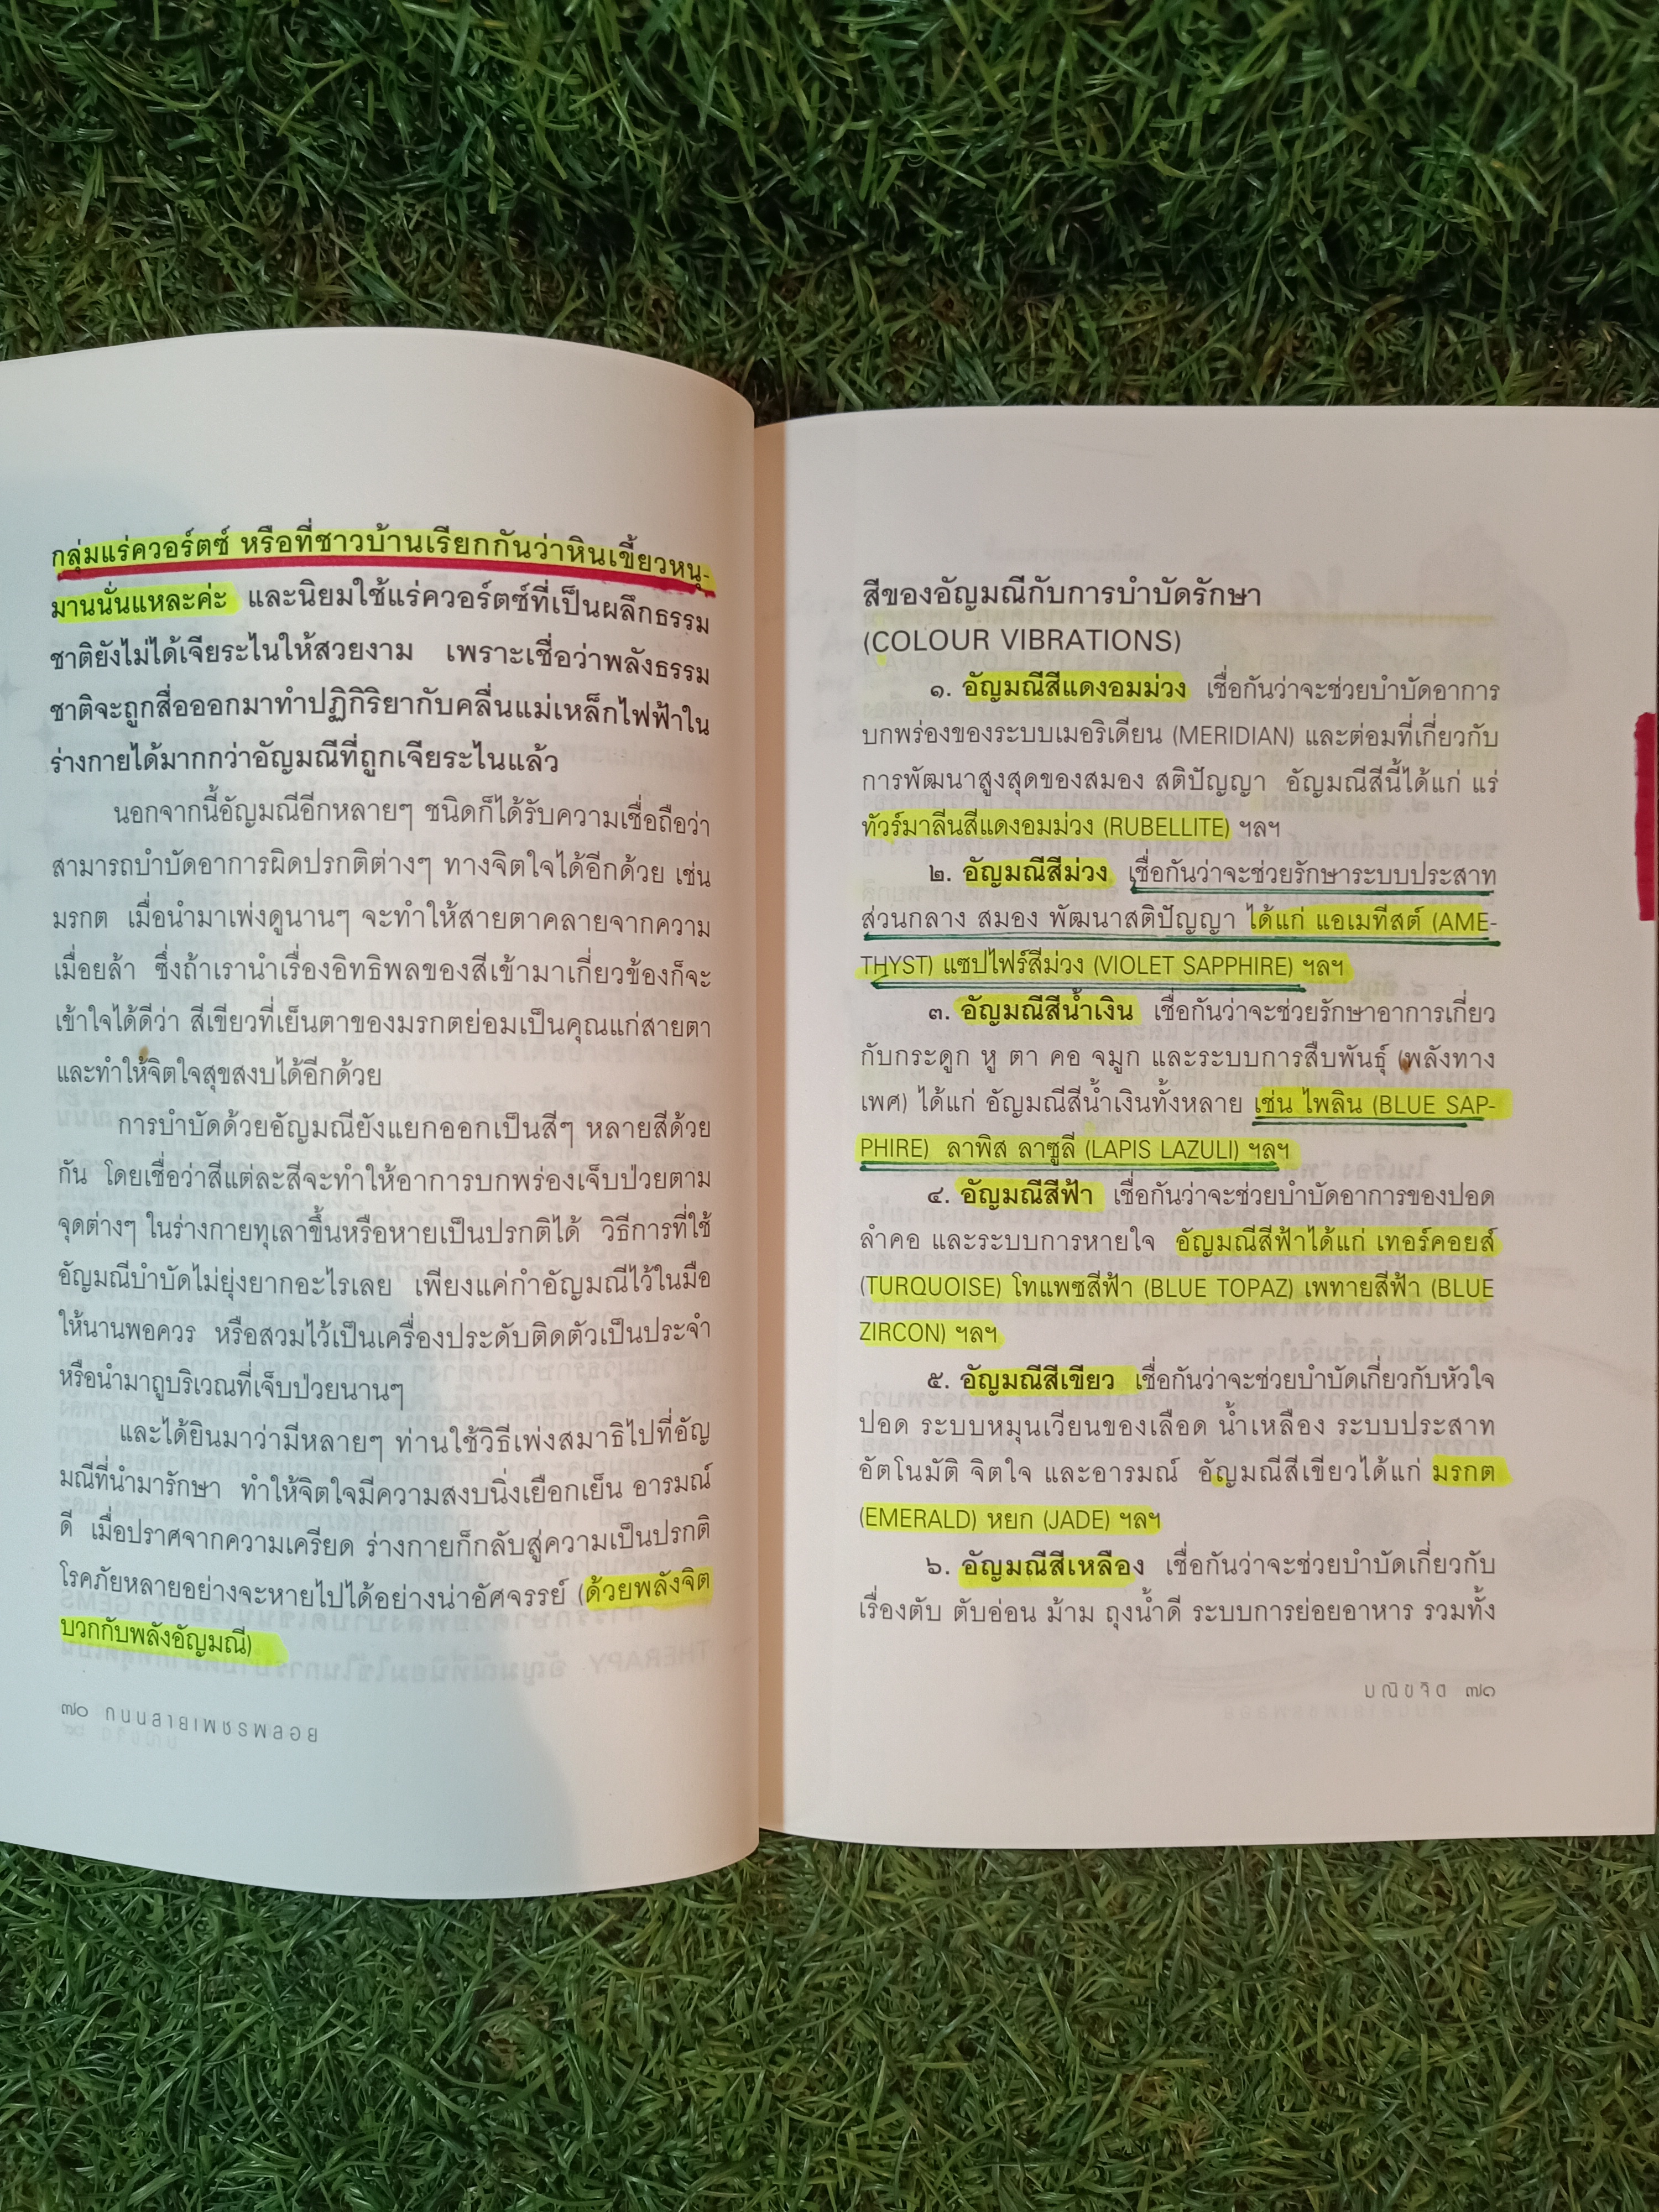 กลุ่มแร่ควอร์ตซ์ หรือที่ชาวบ้านเรียกกันว่าหินเขี้ยวหนุ-
มานนั่นแหละค่ะ และนิยมใช้แร่ควอร์ตซ์ที่เป็นผลึกธรรม
ชาติยังไม่ได้เจียระไนให้สวยงาม เพราะเชื่อว่าพลังธรรม
ชาติจะถูกสื่อออกมาทำปฏิกิริยากับคลื่นแม่เหล็กไฟฟ้าใน
ร่างกายได้มากกว่าอัญมณีที่ถูกเจียระไนแล้ว
นอกจากนี้อัญมณีอีกหลายๆ ชนิดก็ได้รับความเชื่อถือว่า
สามารถบำบัดอาการผิดปรกติต่างๆ ทางจิตใจได้อีกด้วย เช่น
มรกต เมื่อนำมาเพ่งดูนานๆ จะทำให้สายตาคลายจากความ
เมื่อยล้า ซึ่งถ้าเรานำเรื่องอิทธิพลของสีเข้ามาเกี่ยวข้องก็จะ
เข้าใจได้ดีว่า สีเขียวที่เย็นตาของมรกตย่อมเป็นคุณแก่สายตา
และทำให้จิตใจสุขสงบได้อีกด้วย
การบำบัดด้วยอัญมณียังแยกออกเป็นสีๆ หลายสีด้วย
กัน โดยเชื่อว่าสีแต่ละสีจะทำให้อาการบกพร่องเจ็บป่วยตาม
จุดต่างๆ ในร่างกายทุเลาขึ้นหรือหายเป็นปรกติได้ วิธีการที่ใช้
อัญมณีบำบัดไม่ยุ่งยากอะไรเลย เพียงแค่กำอัญมณีไว้ในมือ
ให้นานพอควร หรือสวมไว้เป็นเครื่องประดับติดตัวเป็นประจำ
หรือนำมาถูบริเวณที่เจ็บป่วยนานๆ
และได้ยินมาว่ามีหลายๆ ท่านใช้วิธีเพ่งสมาธิไปที่อัญ
มณีที่นำมารักษา ทำให้จิตใจมีความสงบนิ่งเยือกเย็น อารมณ์
ดี เมื่อปราศจากความเครียด ร่างกายก็กลับสู่ความเป็นปรกติ
โรคภัยหลายอย่างจะหายไปได้อย่างน่าอัศจรรย์ (ด้วยพลังจิต
บวกกับพลังอัญมณี)
๗๐ ถนนสายเพชรพลอย
สีของอัญมณีกับการบำบัดรักษา
(COLOUR VIBRATIONS)
๑. อัญมณีสีแดงอมม่วง เชื่อกันว่าจะช่วยบำบัดอาการ
บกพร่องของระบบเมอริเดียน (MERIDIAN) และต่อมที่เกี่ยวกับ
การพัฒนาสูงสุดของสมอง สติปัญญา อัญมณีสีนี้ได้แก่ แร่
ทัวร์มาลีนสีแดงอมม่วง (RUBELLITE) ฯลฯ
๒. อัญมณีสีม่วง เชื่อกันว่าจะช่วยรักษาระบบประสาท
ส่วนกลาง สมอง พัฒนาสติปัญญา ได้แก่ แอเมทีสต์ (AME-
THYST) แซปไฟร์สีม่วง (VIOLET SAPPHIRE) ฯลฯ
๓. อัญมณีสีน้ำเงิน เชื่อกันว่าจะช่วยรักษาอาการเกี่ยว
กับกระดูก หู ตา คอ จมูก และระบบการสืบพันธุ์ (พลังทาง
เพศ) ได้แก่ อัญมณีสีน้ำเงินทั้งหลาย เช่น ไพลิน (BLUE SAP-
PHIRE) ลาพิส ลาซูลี (LAPIS LAZULI) ฯลฯ
๔. อัญมณีสีฟ้า เชื่อกันว่าจะช่วยบำบัดอาการของปอด
ลำคอ และระบบการหายใจ อัญมณีสีฟ้าได้แก่ เทอร์คอยส์
(TURQUOISE) โทแพซสีฟ้า (BLUE TOPAZ) เพทายสีฟ้า (BLUE
ZIRCON) ฯลฯ
๕. อัญมณีสีเขียว เชื่อกันว่าจะช่วยบำบัดเกี่ยวกับหัวใจ
ปอด ระบบหมุนเวียนของเลือด น้ำเหลือง ระบบประสาท
อัตโนมัติ จิตใจ และอารมณ์ อัญมณีสีเขียวได้แก่ มรกต
(EMERALD) หยก (JADE) ฯลฯ
๖. อัญมณีสีเหลือง เชื่อกันว่าจะช่วยบำบัดเกี่ยวกับ
เรื่องตับ ตับอ่อน ม้าม ถุงน้ำดี ระบบการย่อยอาหาร รวมทั้ง
มณิขจิต ๗๑